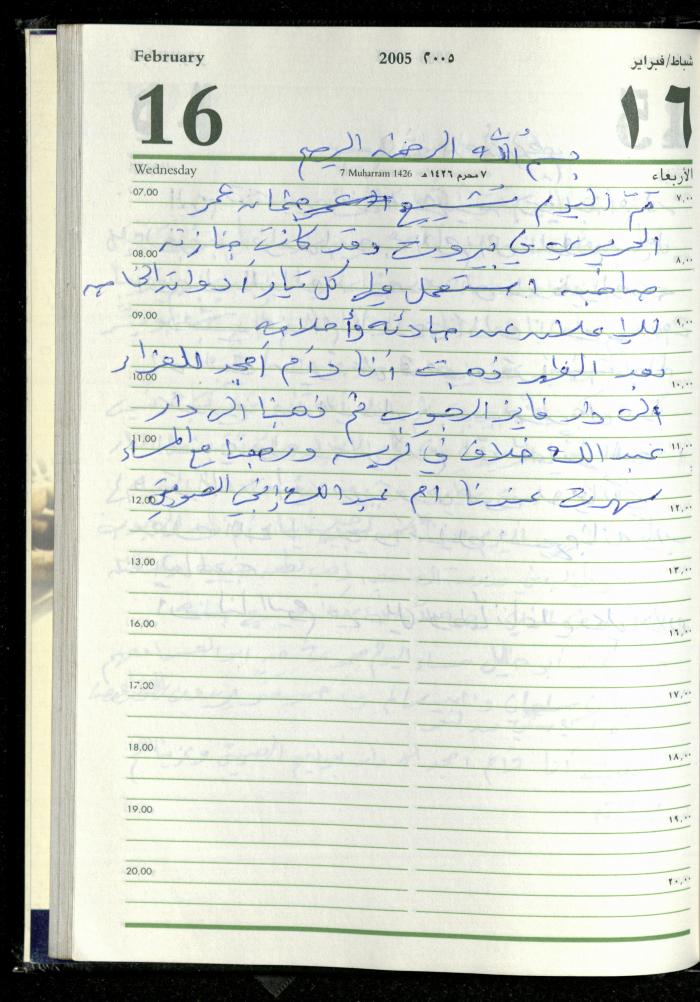 February 2005 ٢٠٠٥ شباط/فبراير
16 ١٦
بسم الله الرحمن الرحيم
Wednesday 7 Muharram 1426 ٧ محرم ١٤٢٦ هـ الأربعاء
07.00 تمّ اليوم تشييع جثمان عمر ٧,٠٠
الحريري في بيروت وقد كانت جنازته
08.00 ٨,٠٠
صاخبه استعمل فيها كل تيار أدواته الخاصه
09.00 للإعلان عن مبادئه وأحلامه ٩,٠٠
بعد الظهر ذهبت أنا وأم أمجد للعزاء
10.00 ١٠,٠٠
الى دار فايز الرجوب ثم ذهبنا الى دار
11.00 عبد الله خلاف في ورجعنا مع المساء ١١,٠٠
12.00 سهرت عندنا ام عبد الله ١٢,٠٠
13.00 ١٣,٠٠
16.00 ١٦,٠٠
17.00 ١٧,٠٠
18.00 ١٨,٠٠
19.00 ١٩,٠٠
20.00 ٢٠,٠٠